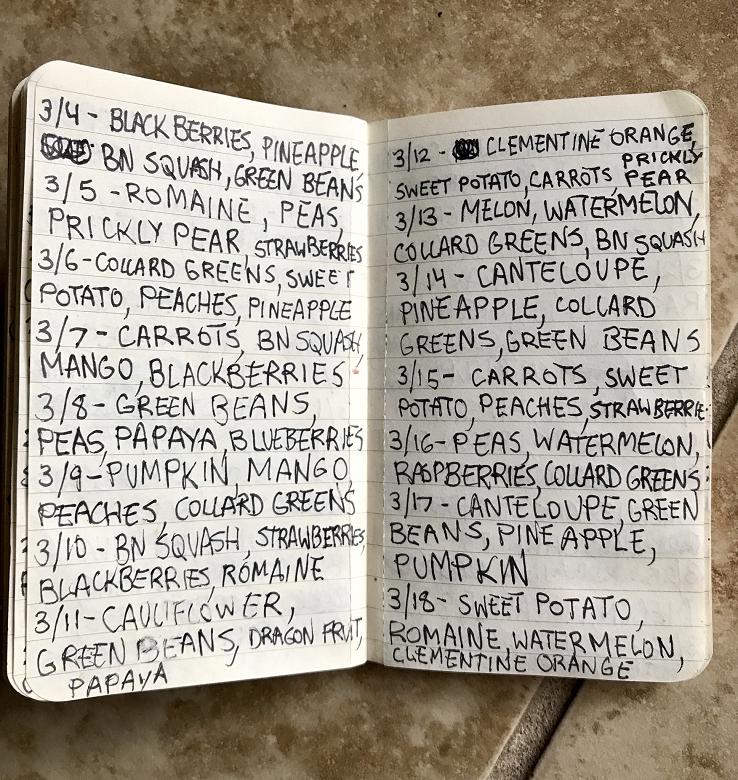 3/4 - BLACKBERRIES, PINEAPPLE,
BN SQUASH, GREEN BEANS
3/5 - ROMAINE, PEAS,
PRICKLY PEAR, STRAWBERRIES
3/6 - COLLARD GREENS, SWEET
POTATO, PEACHES, PINEAPPLE
3/7 - CARROTS, BN SQUASH,
MANGO, BLACKBERRIES
3/8 - GREEN BEANS,
PEAS, PAPAYA, BLUEBERRIES
3/9 - PUMPKIN, MANGO,
PEACHES, COLLARD GREENS
3/10 - BN SQUASH, STRAWBERRIES,
BLACKBERRIES, ROMAINE
3/11 - CAULIFLOWER,
GREEN BEANS, DRAGON FRUIT,
PAPAYA
3/12 - CLEMENTINE ORANGE,
PRICKLY
SWEET POTATO, CARROTS PEAR
3/13 - MELON, WATERMELON,
COLLARD GREENS, BN SQUASH
3/14 - CANTELOUPE,
PINEAPPLE, COLLARD
GREENS, GREEN BEANS
3/15 - CARROTS, SWEET
POTATO, PEACHES, STRAWBERRIE
3/16 - PEAS, WATERMELON,
RASPBERRIES, COLLARD GREENS
3/17 - CANTELOUPE, GREEN
BEANS, PINEAPPLE,
PUMPKIN
3/18 - SWEET POTATO,
ROMAINE, WATERMELON,
CLEMENTINE ORANGE